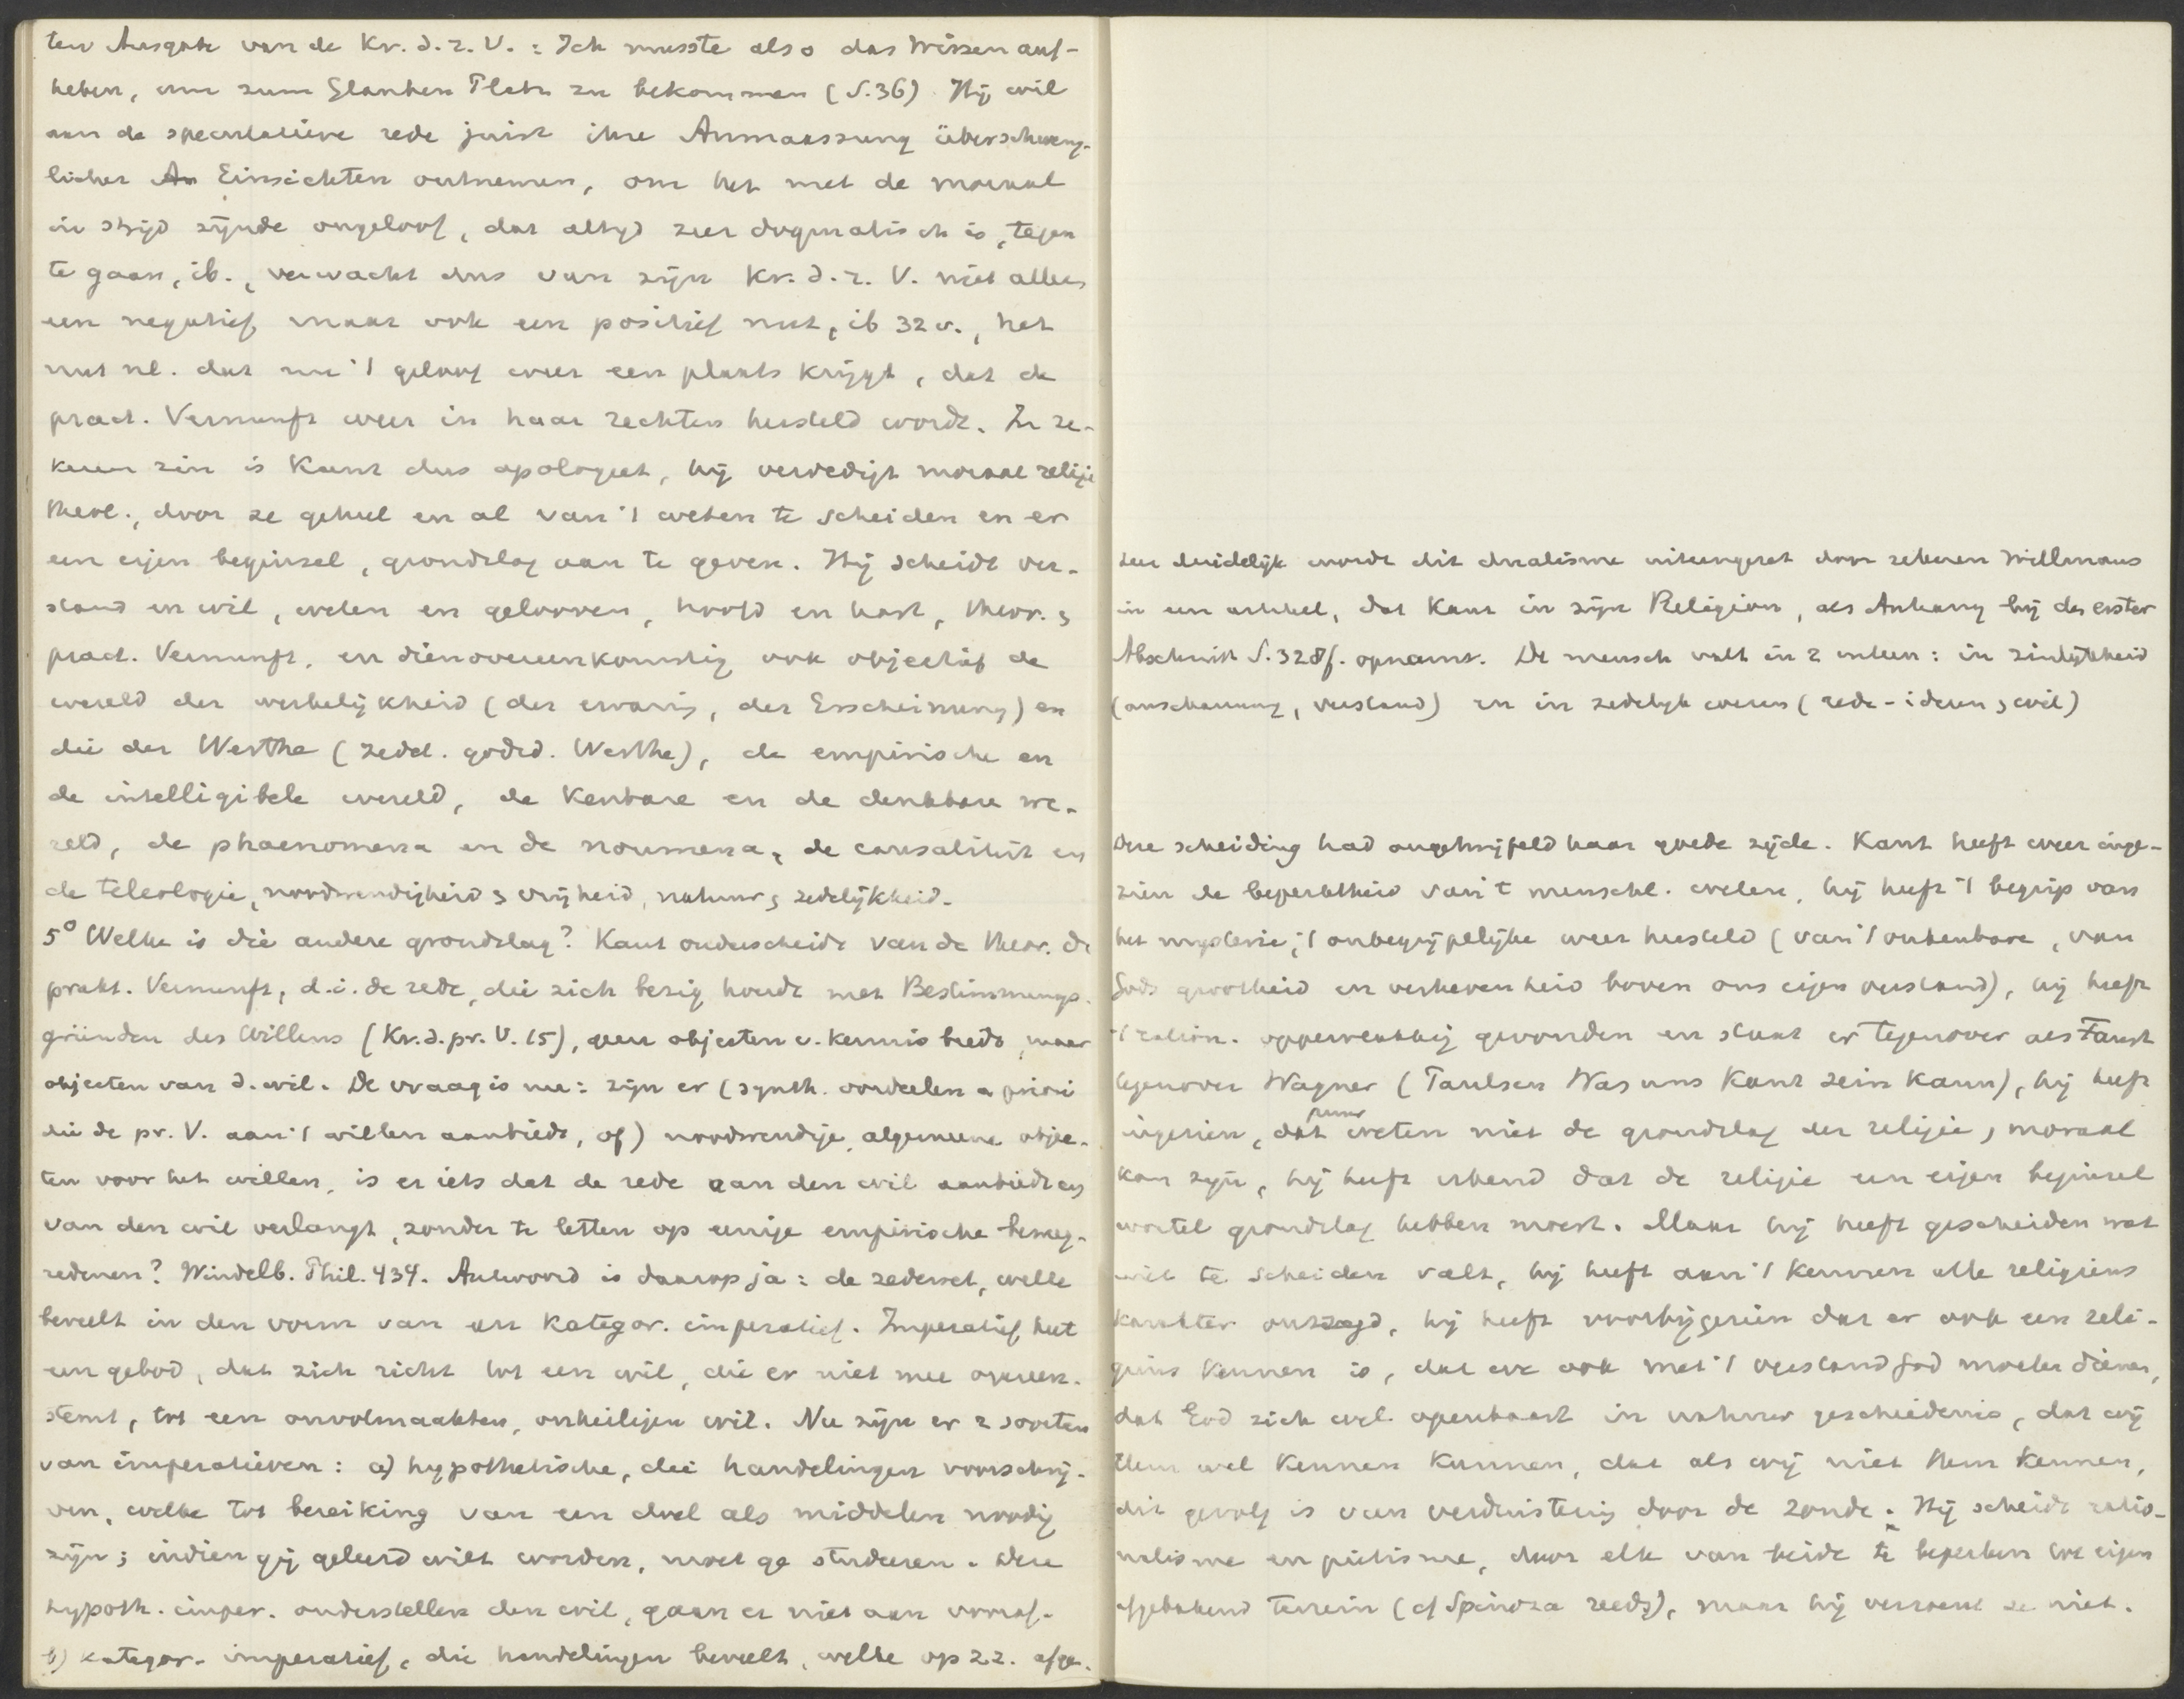 ten Ausgabe van de Kr. d. r. V. : Ich musste also das Wissen auf-
heben, um zum Glauben Platz zu bekommen (S. 36) Hij wil
aan de speculatieve rede juist ihre Anmaassung überschweng-
licher Einsichten ontnemen, om het met de moraal
in strijd zijnde ongeloof, dat altijd zeer dogmatisch is, tegen
te gaan, ib., verwacht dus van zijn Kr. d. r. V. niet alleen
een negatief maar ook een positief nut, ib 32 v., het
nut nl. dat nu 't geloof weer een plaats krijgt, dat de
pract. Vernunft weer in haar rechten hersteld wordt. In ze-
keren zin is Kant dus apologeet, hij verdedigt moraal religie
theol., door ze geheel en al van 't weten te scheiden en er
een eigen beginsel, grondslag aan te geven. Hij scheidt ver-
stand en wil, weten en gelooven, hoofd en hart, theor. &
pract. Vernunft, en dienovereenkomstig ook objectief de
wereld der werkelijkheid (der ervaring, der Erscheinung) en
die der Werthe (zedel. godsd. Werthe), de empirische en
de intelligibele wereld, de kenbare en de denkbare we-
reld, de phaenomena en de noumena, de causaliteit en
de teleologie, noodwendigheid & vrijheid, natuur & zedelijkheid.
5° Welke is die andere grondslag? Kant onderscheidt van de theor. de
prakt. Vernunft, d. i. de rede, die zich bezig houdt met Bestimmungs-
gründen des Willens (Kr. d. pr. V. 15), geen objecten v. kennis biedt, maar
objecten van d. wil. De vraag is nu: zijn er (synth. oordeelen a priori
die de pr. V. aan 't willen aanbiedt, of) noodwendige, algemeene objec-
ten voor het willen, is er iets dat de rede aan den wil aanbiedt en
van den wil verlangt, zonder te letten op eenige empirische beweeg-
redenen? Windelb. Phil. 434. Antwoord is daarop ja: de zedewet, welke
beveelt in den vorm van een kategor. imperatief. Imperatief heet
een gebod, dat zich richt tot een wil, die er niet mee overeen-
stemt, tot een onvolmaakten, onheiligen wil. Nu zijn er 2 soorten
van imperatieven: a) hypothetische, die handelingen voorschrij-
ven, welke tot bereiking van een doel als middelen noodig
zijn; indien gij geleerd wilt worden, moet ge studeeren. Deze
hypoth. imper. onderstellen den wil, gaan er niet aan vooraf.
b) kategor. imperatief, die handelingen beveelt, welke op z.z. afge-
Zeer duidelijk wordt dit dualisme uiteengezet door zekeren Willmans
in een artikel, dat Kant in zijn Religion, als Anhang bij der erster
Abschnitt S. 328 f. opnam. De mensch valt in 2 uiteen: in zinlijkheid
(anschauung, verstand) en in zedelijk wezen (rede-ideeen & wil)
Deze scheiding had ongetwijfeld haar goede zijde. Kant heeft weer inge-
zien de beperktheid van 't menschl. weten, hij heeft 't begrip van
het mysterie, 't onbegrijpelijke weer hersteld (van 't onkenbare, van
Gods grootheid en verhevenheid boven ons eigen verstand), hij heeft
't ration. oppervlakkig gevonden en staat er tegenover als Faust
tegenover Wagner (Paulsen Was uns Kant sein kann), hij heeft
ingezien, dat puur weten niet de grondslag der religie, moraal
kan zijn, hij heeft erkend dat de religie een eigen beginsel
wortel grondslag hebben moest. Maar hij heeft gescheiden wat
niet te scheiden valt, hij heeft aan 't kennen alle religieus
karakter ontzegd, hij heeft voorbijgezien dat er ook een reli-
gieus kennen is, dat we ook met 't verstand God moeten dienen,
dat God zich wel openbaart in natuur geschiedenis, dat wij
Hem wel kennen kunnen, dat als wij niet Hem kennen,
dit gevolg is van verduistering door de zonde. Hij scheidt ratio-
nalisme en piëtisme, door elk van beide te beperken tot eigen
afgebakend terrein (cf Spinoza reeds), maar hij verzoent ze niet.